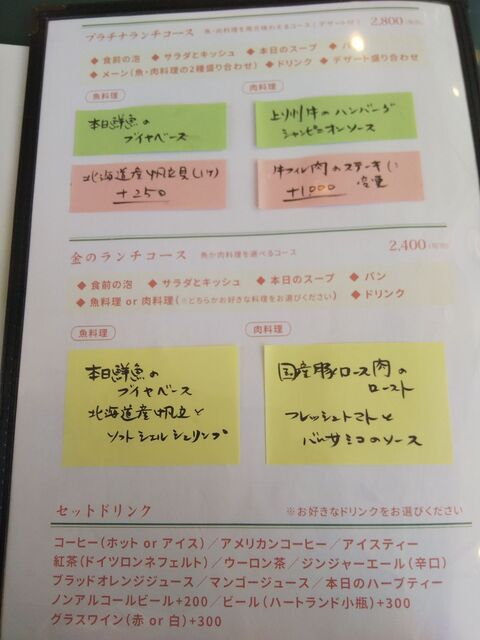 プラチナランチコース 魚・肉料理を両方味わえるコース(デザート付) 2,800(税別)
◆ 食前の泡 ◆ サラダとキッシュ ◆ 本日のスープ ◆ パン
◆ メーン(魚・肉料理の2種盛り合わせ) ◆ ドリンク ◆ デザート盛り合わせ
魚料理
本日鮮魚の
ブイヤベース
北海道産帆立貝(1ケ)
+250
肉料理
上州牛のハンバーグ
シャンピニオンソース
牛フィレ肉のステーキに
変更
+1,000
金のランチコース 魚か肉料理を選べるコース 2,400(税別)
◆ 食前の泡 ◆ サラダとキッシュ ◆ 本日のスープ ◆ パン
◆ 魚料理 or 肉料理(※どちらかお好きな料理をお選びください) ◆ ドリンク
魚料理
本日鮮魚の
ブイヤベース
北海道産帆立と
ソフトシェルシュリンプ
肉料理
国産豚ロース肉の
ロースト
フレッシュトマトと
バルサミコのソース
セットドリンク ※お好きなドリンクをお選びください
コーヒー(ホット or アイス)/アメリカンコーヒー/アイスティー
紅茶(ドイツロンネフェルト)/ウーロン茶/ジンジャーエール(辛口)
ブラッドオレンジジュース/マンゴージュース/本日のハーブティー
ノンアルコールビール+200/ビール(ハートランド小瓶)+300
グラスワイン(赤 or 白)+300